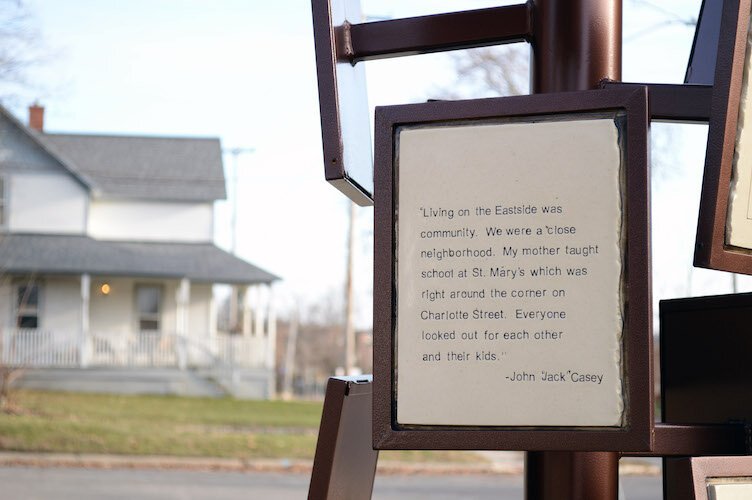 "Living on the Eastside was
community. We were a "close
neighborhood. My mother taught
school at St. Mary's which was
right around the corner on
Charlotte Street. Everyone
looked out for each other
and their kids."
-John "Jack" Casey